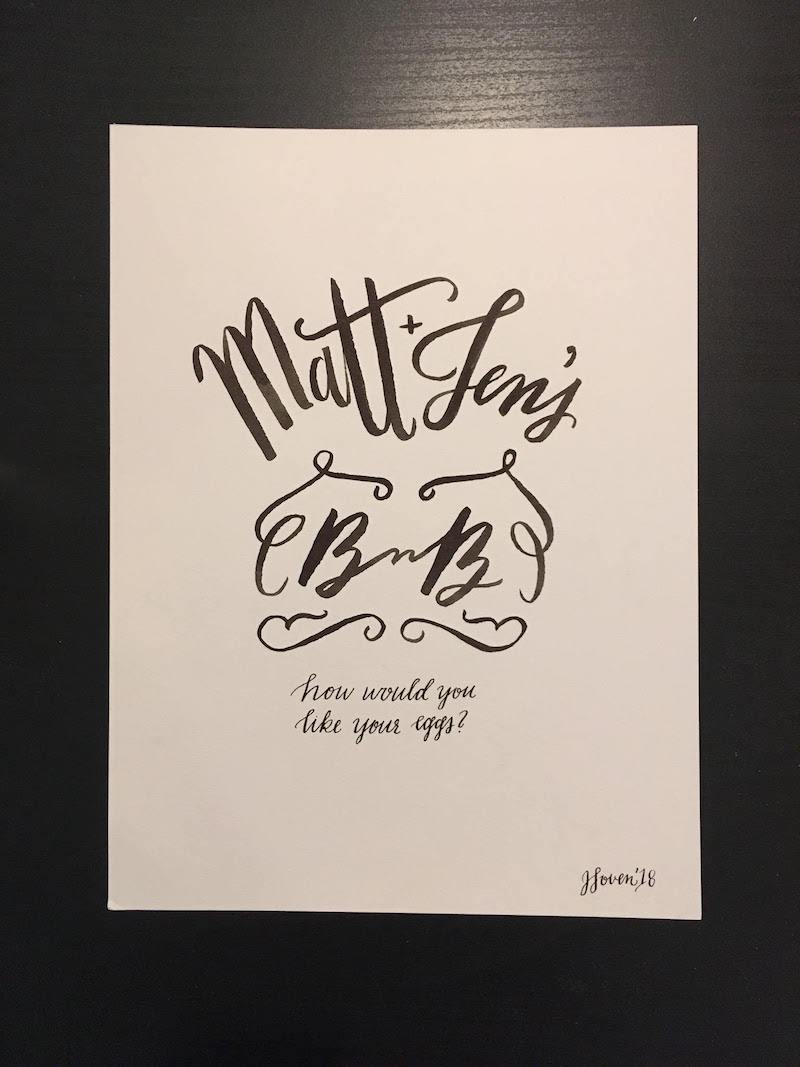 Matt + Jen's
BnB
how would you
like your eggs?
JSoven '18